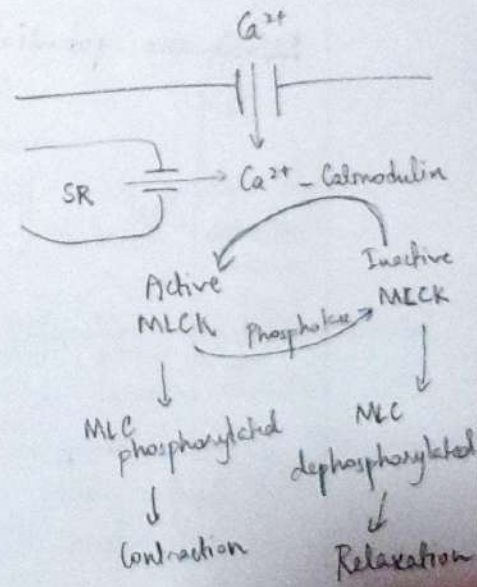 Ca²⁺
SR
Ca²⁺ - Calmodulin
Active
MLCK
Inactive
MLCK
MLC
phosphorylated
MLC
dephosphorylated
Contraction
Relaxation